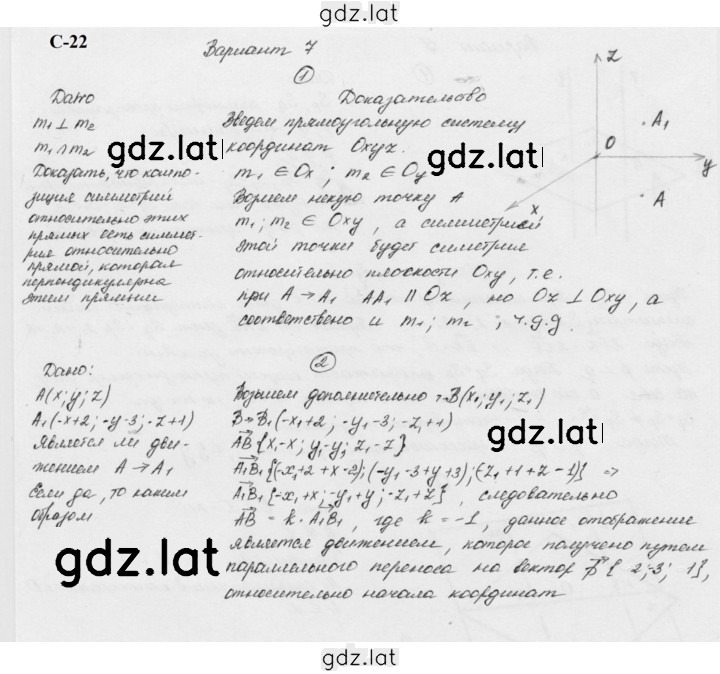 gdz.lat
С-22
Вариант 7
gdz.lat
1
Дано
m₁ ⊥ m₂
m₁ ∩ m₂
Доказать, что компо-
зиция симметрий
относительно этих
прямых есть симмет-
рия относительно
прямой, которая
перпендикулярна
этим прямым
Доказательство
Введем прямоугольную систему
координат Oxyz.
m₁ ∈ Ox ; m₂ ∈ Oy
Возьмем некую точку A
m₁; m₂ ∈ Oxy, а симметрией
этой точки будет симетрия
относительно плоскости Oxy, т.е.
при A → A₁ AA₁ ∥ Oz, но Oz ⊥ Oxy, а
соответствено и m₁; m₂ ; ч.д.д.
z
A₁
O
y
x
A
gdz.lat
gdz.lat
2
Дано:
A(x; y; z)
A₁(-x+2; -y-3; -z+1)
Является ли дви-
жением A → A₁
Если да, то каким
образом
Возьмем дополнительно т. B(x₁; y₁; z₁)
B → B₁(-x₁+2; -y₁-3; -z₁+1)
AB {x₁-x; y₁-y; z₁-z}
A₁B₁ {(-x₁+2+x-2);(-y₁-3+y+3);(-z₁+1+z-1)} =>
A₁B₁ {-x₁+x; -y₁+y; -z₁+z}, следовательно
AB = k · A₁B₁, где k = -1, данное отображение
является движением, которое получено путем
параллельного переноса на вектор p {2; -3; 1},
относительно начала координат
gdz.lat
gdz.lat
gdz.lat